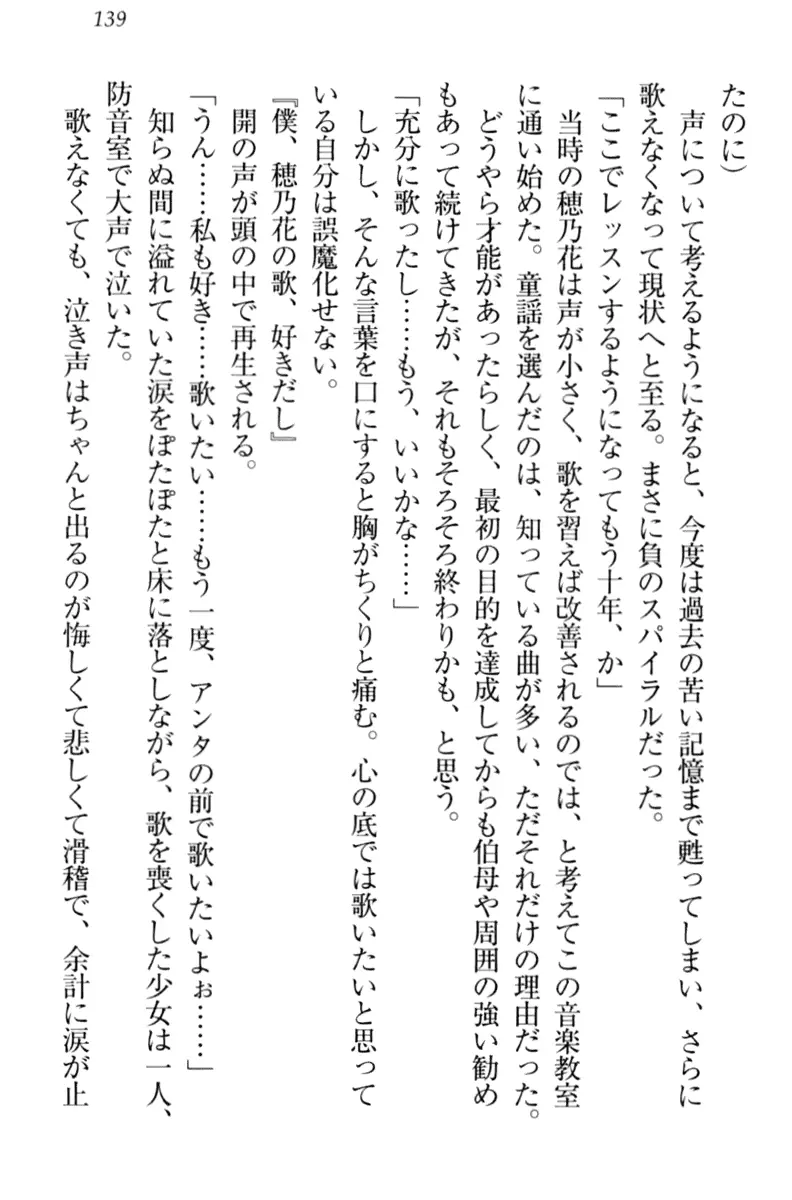 139
たのに)
声について考えるようになると、今度は過去の苦い記憶まで甦ってしまい、さらに
歌えなくなって現状へと至る。まさに負のスパイラルだった。
「ここでレッスンするようになってもう十年、か」
当時の穂乃花は声が小さく、歌を習えば改善されるのでは、と考えてこの音楽教室
に通い始めた。童謡を選んだのは、知っている曲が多い、ただそれだけの理由だった。
どうやら才能があったらしく、最初の目的を達成してからも伯母や周囲の強い勧め
もあって続けてきたが、それもそろそろ終わりかも、と思う。
「充分に歌ったし……もう、いいかな……」
しかし、そんな言葉を口にすると胸がちくりと痛む。心の底では歌いたいと思って
いる自分は誤魔化せない。
『僕、穂乃花の歌、好きだし』
開の声が頭の中で再生される。
「うん……私も好き……歌いたい……もう一度、アンタの前で歌いたいよぉ……」
知らぬ間に溢れていた涙をぽたぽたと床に落としながら、歌を喪くした少女は一人、
防音室で大声で泣いた。
歌えなくても、泣き声はちゃんと出るのが悔しくて悲しくて滑稽で、余計に涙が止